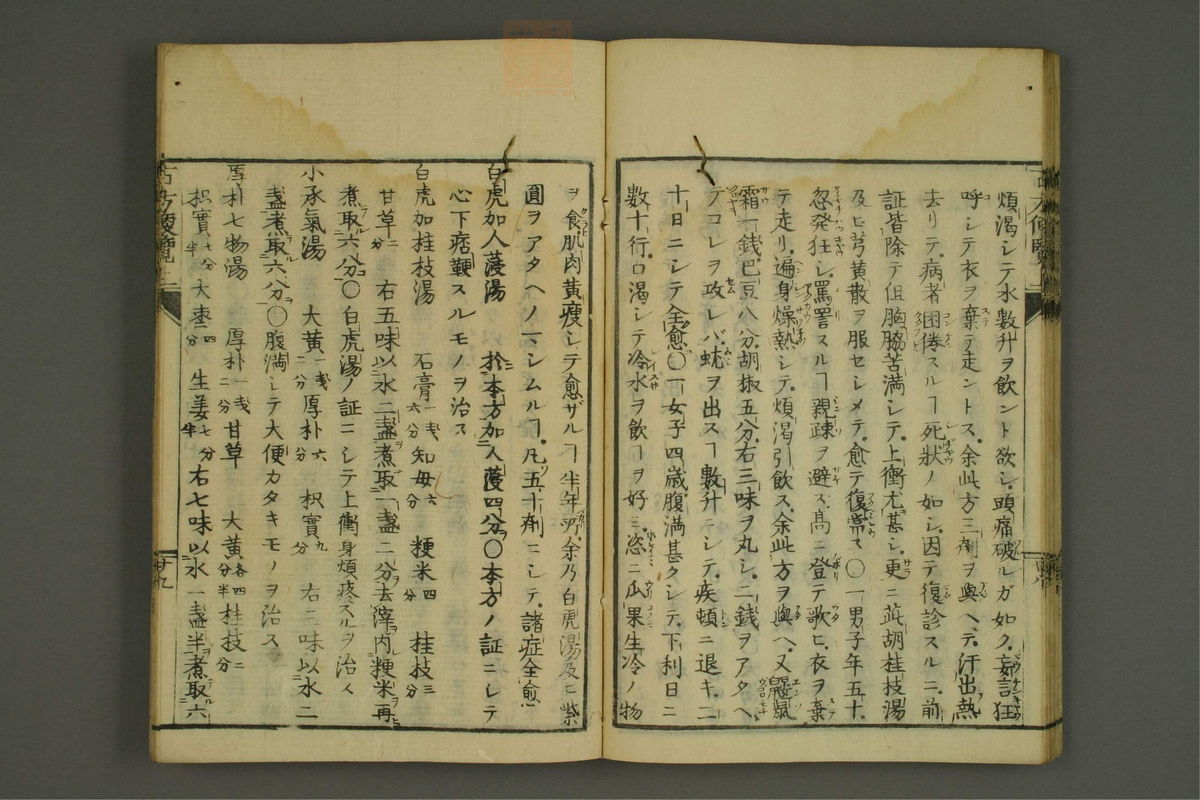 煩渇シテ水數升ヲ飲ント欲シ頭痛破ルガ如ク妄語狂
呼シテ衣ヲ棄テ走ントス余此方三剤ヲ與ヘテ汗出熱
去リテ病者困倦スルヿ死狀ノ如シ因テ復診スルニ前
証皆除テ但胸脇苦満シテ上衝尤甚シ更ニ茈胡桂枝湯
及ヒ芎黄散ヲ服セシメテ愈テ復常ス〇一男子年五十
忽發狂シ罵詈スルヿ親疎ヲ避ス髙ニ登テ歌ヒ衣ヲ棄
テ走リ遍身燥熱シテ煩渇引飲ス余此方ヲ與ヘ又鼴鼠
霜一銭巴豆八分胡椒五分右三味ヲ丸シ二銭ヲアタヘ
テコレヲ攻レバ蚘ヲ出スヿ數升ニシテ疾頓ニ退キ二
十日ニシテ全愈〇一女子四歳腹満甚クシテ下利日ニ
數十行口渇シテ冷水ヲ飲ヿヲ好ミ恣ニ瓜果生冷ノ物
ヲ食肌肉黄瘦シテ愈ザルヿ半年所余乃白虎湯及ヒ紫
圓ヲアタヘノマシムルヿ凡五十剤ニシテ諸症全愈
白虎加人薓湯 於本方加人薓四分〇本方ノ証ニシテ
心下痞鞕スルモノヲ治ス
白虎加桂枝湯 石膏一戋六分知母六分 粳米四分 桂枝三分
甘草二分 右五味以水二盞煮取一盞二分去滓内粳米再
煮取六八分〇白虎湯ノ証ニシテ上衝身煩疼スルヲ治ス
小承氣湯 大黄一戋二分厚朴六分 枳實九分 右三味以水二
盞煮取六八分〇腹満シテ大便カタキモノヲ治ス
厚朴七物湯 厚朴一戋二分甘草 大黄各四分半桂枝二分
枳實七分半大棗四分 生姜七分半右七味以水一盞半煮取六
古方便覽上
廿九